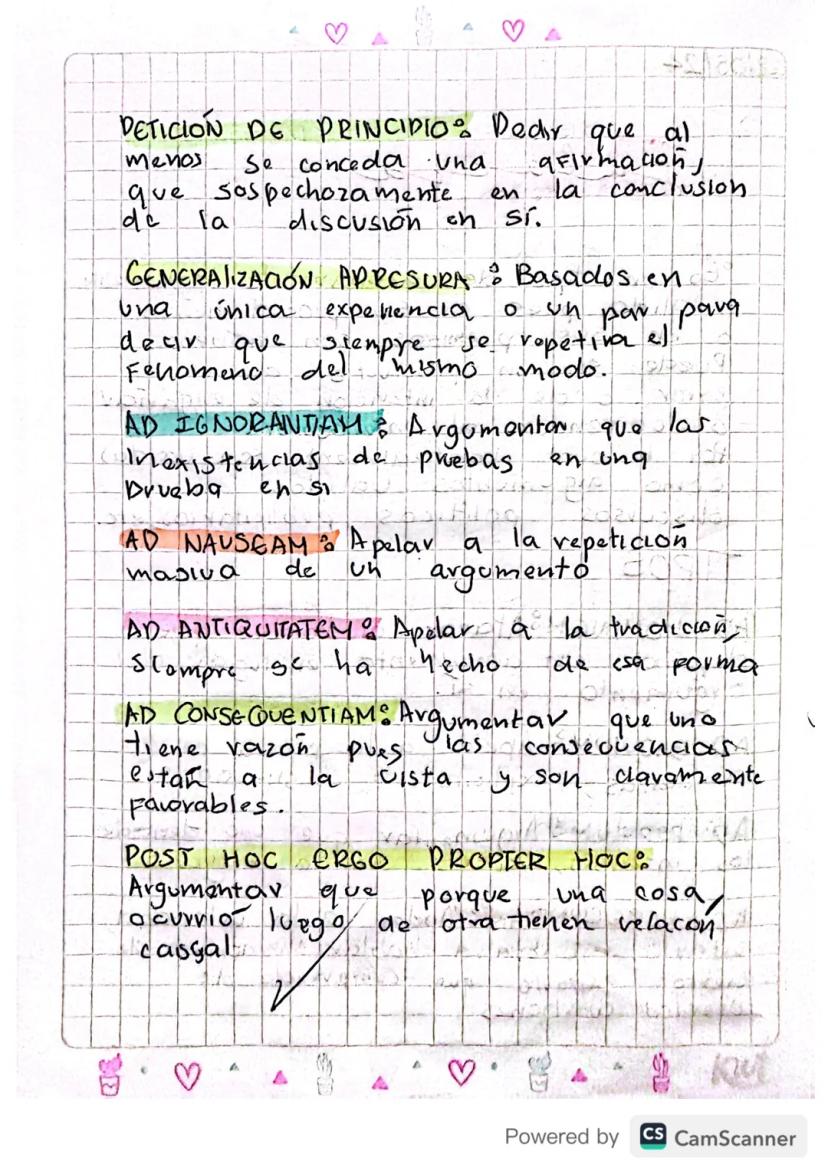 PETICIÓN DE PRINCIPIO: Decir que al
menos se conceda una afirmación,
que sospechozamente en la conclusion
de la discusión en sí.
GENERALIZACIÓN APRESURA: Basados en
una única experiencia o un par para
decir que siempre se repetira el
Fenomeno del mismo modo.
AD IGNORANTIAM: Argumentar que las
Inexistencias de pruebas en una
Prueba en si
AD NAUSEAM: Apelar a la repetición
masiva de un argumento
AD ANTIQUITATEM: Apelar a la tradición,
Siempre se ha hecho de esa Forma
AD CONSEQUENTIAM: Argumentar que uno
tiene razón pues las consecuencias
están a la vista y son claramente
Favorables.
POST HOC ERGO PROPTER HOC:
Argumentar que porque una cosa,
ocurrió luego de otra tienen relacón
casual
Powered by CS CamScanner